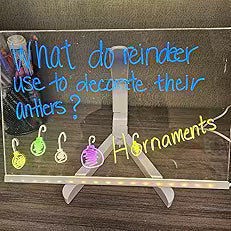 What do reindeer
use to decorate their
antlers?
Hornaments